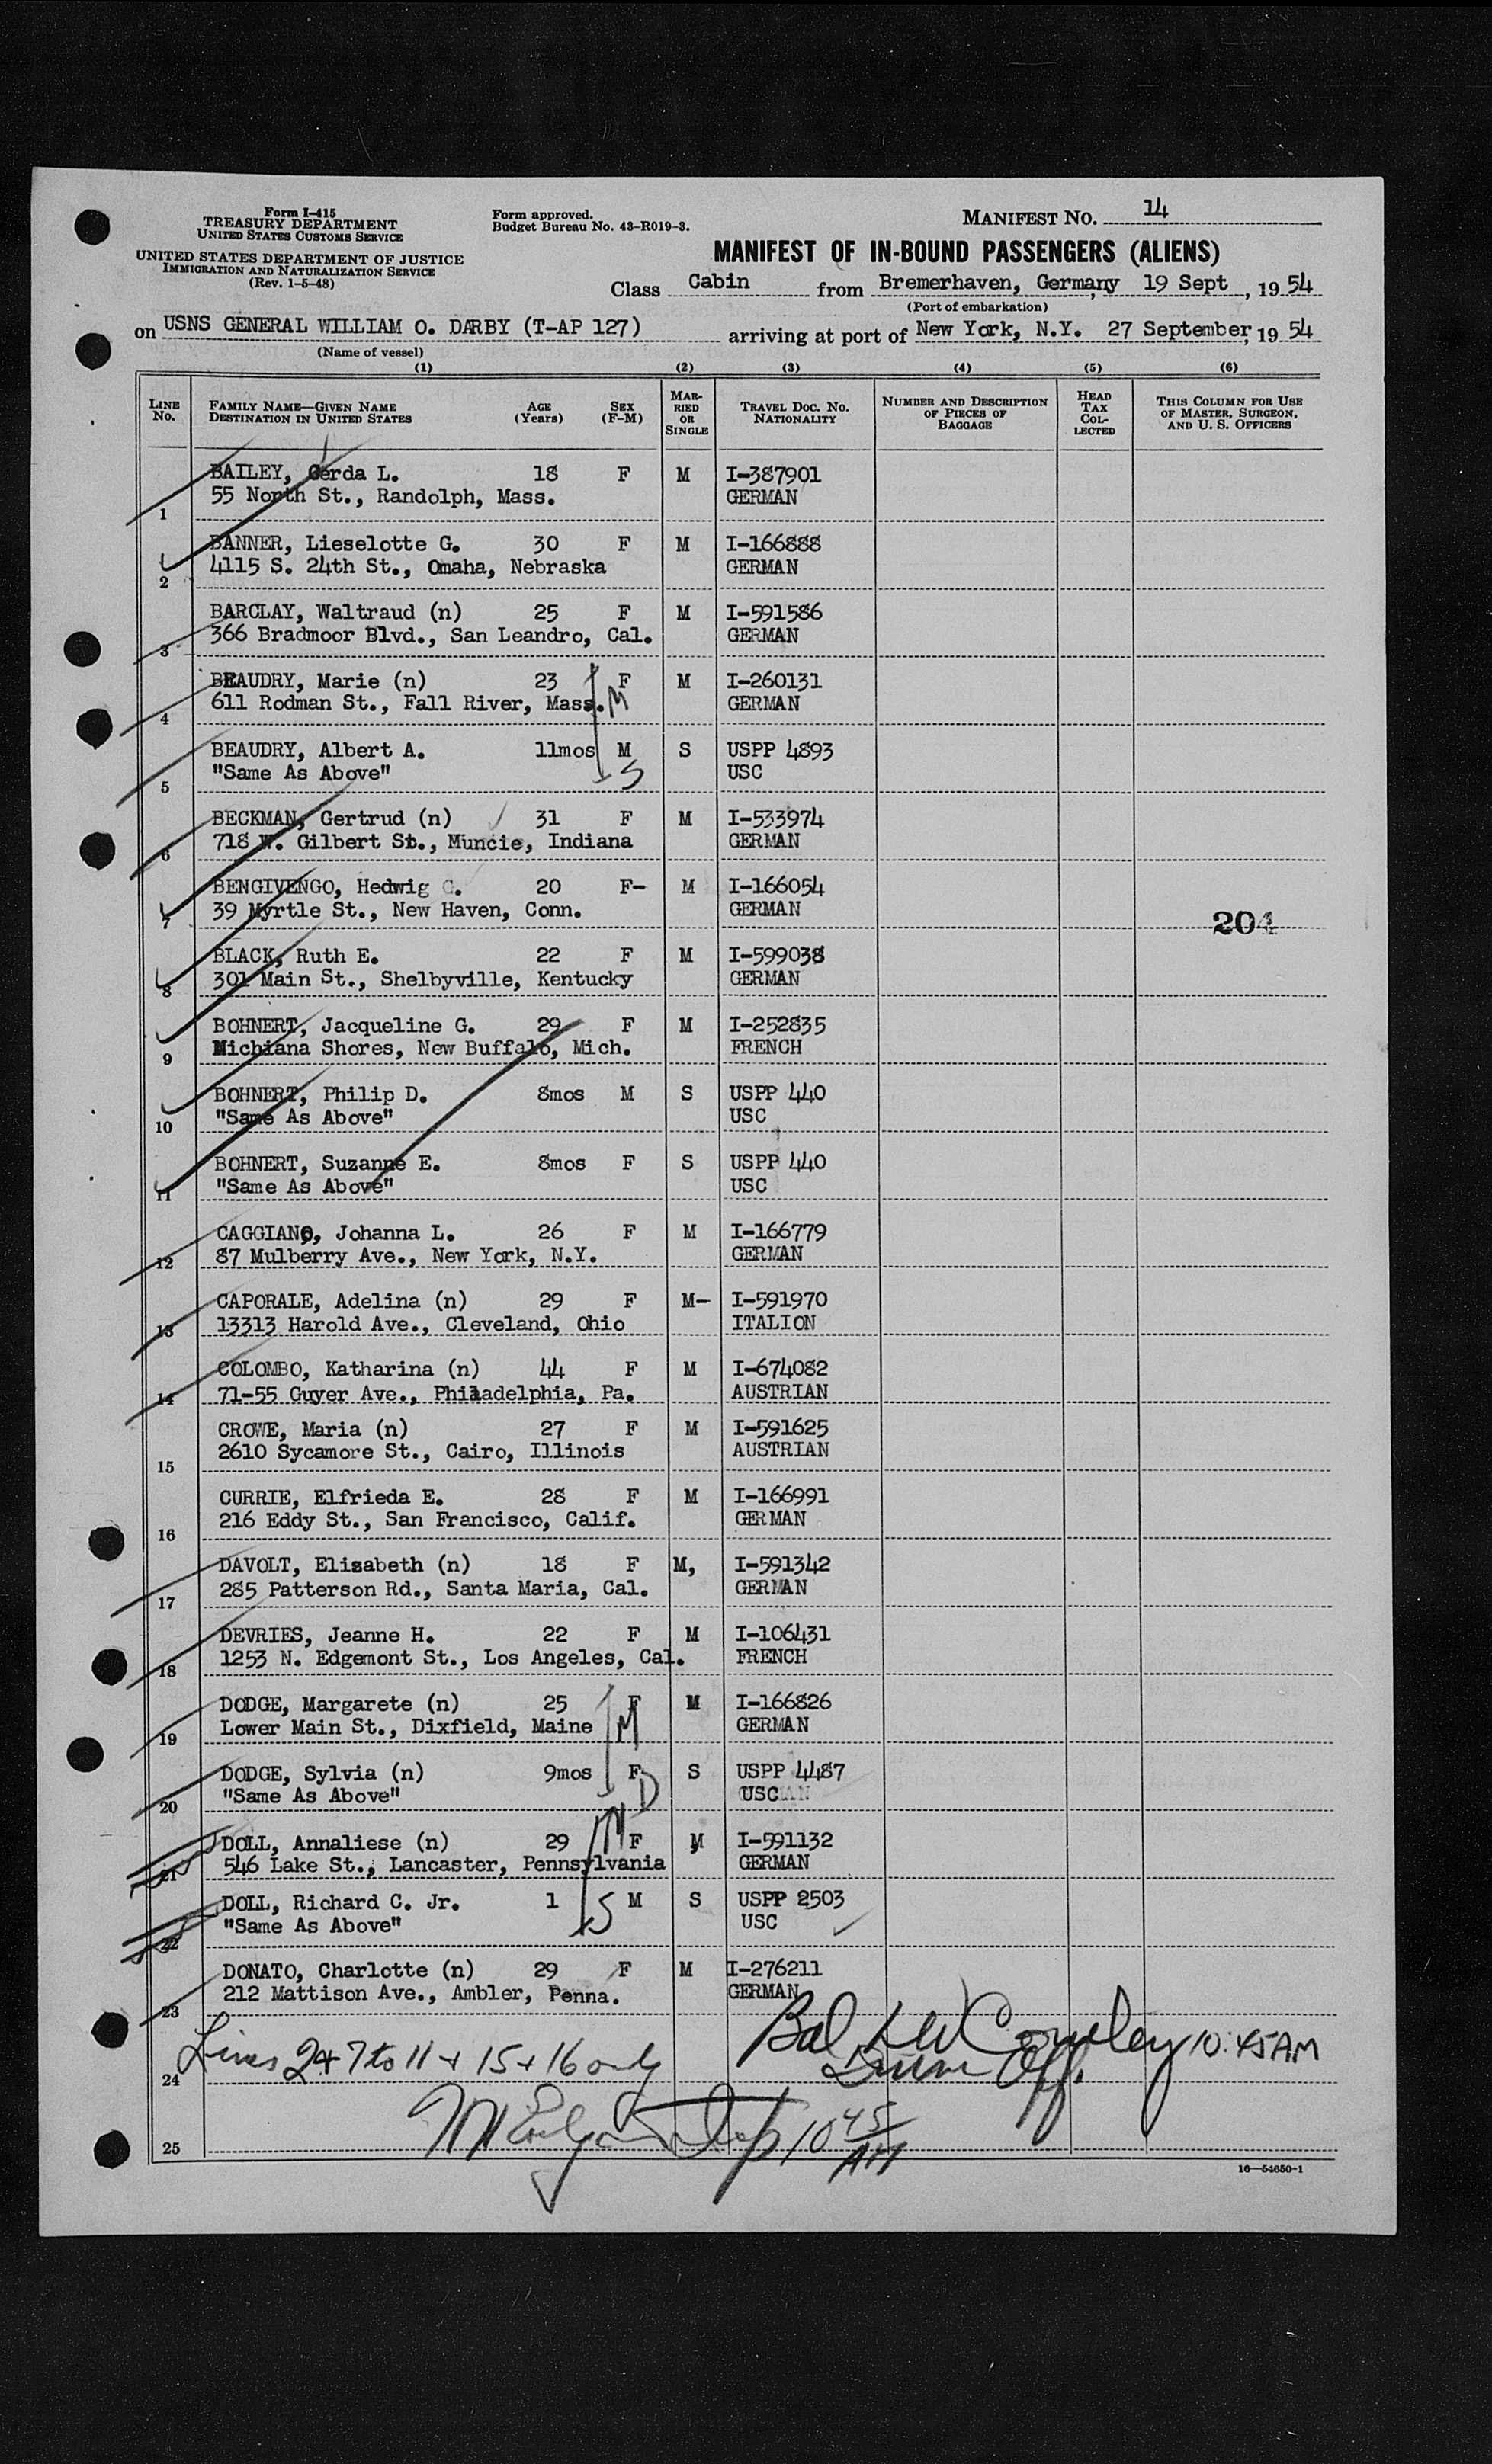 Form I-415
TREASURY DEPARTMENT
UNITED STATES CUSTOMS SERVICE
UNITED STATES DEPARTMENT OF JUSTICE
IMMIGRATION AND NATURALIZATION SERVICE
(Rev. 1-5-48)
Form approved.
Budget Bureau No. 43-R019-3.
MANIFEST NO. 14
MANIFEST OF IN-BOUND PASSENGERS (ALIENS)
Class Cabin from Bremerhaven, Germany, 19 Sept, 1954
(Port of embarkation)
on USNS GENERAL WILLIAM O. DARBY (T-AP 127) arriving at port of New York, N.Y. 27 September, 1954
(Name of vessel)
(1) (2) (3) (4) (5) (6)
LINE No. FAMILY NAME—GIVEN NAME DESTINATION IN UNITED STATES AGE (Years) SEX (F-M) MARRIED OR SINGLE TRAVEL DOC. NO. NATIONALITY NUMBER AND DESCRIPTION OF PIECES OF BAGGAGE HEAD TAX COLLECTED THIS COLUMN FOR USE OF MASTER, SURGEON, AND U. S. OFFICERS
BAILEY, Gerda L. 18 F M I-387901
1 55 North St., Randolph, Mass. GERMAN
BANNER, Lieselotte G. 30 F M I-166888
2 4115 S. 24th St., Omaha, Nebraska GERMAN
BARCLAY, Waltraud (n) 25 F M I-591586
3 366 Bradmoor Blvd., San Leandro, Cal. GERMAN
BEAUDRY, Marie (n) 23 F M I-260131
4 611 Rodman St., Fall River, Mass. M GERMAN
BEAUDRY, Albert A. 11mos M S USPP 4893
5 "Same As Above" S USC
BECKMAN, Gertrud (n) 31 F M I-533974
6 718 W. Gilbert St., Muncie, Indiana GERMAN
BENGIVENGO, Hedwig C. 20 F- M I-166054
7 39 Myrtle St., New Haven, Conn. GERMAN 204
BLACK, Ruth E. 22 F M I-599038
8 301 Main St., Shelbyville, Kentucky GERMAN
BOHNERT, Jacqueline G. 29 F M I-252835
9 Michiana Shores, New Buffalo, Mich. FRENCH
BOHNERT, Philip D. 8mos M S USPP 440
10 "Same As Above" USC
BOHNERT, Suzanne E. 8mos F S USPP 440
11 "Same As Above" USC
CAGGIANO, Johanna L. 26 F M I-166779
12 87 Mulberry Ave., New York, N.Y. GERMAN
CAPORALE, Adelina (n) 29 F M- I-591970
13 13313 Harold Ave., Cleveland, Ohio ITALION
COLOMBO, Katharina (n) 44 F M I-674082
14 71-55 Guyer Ave., Philadelphia, Pa. AUSTRIAN
CROWE, Maria (n) 27 F M I-591625
15 2610 Sycamore St., Cairo, Illinois AUSTRIAN
CURRIE, Elfrieda E. 28 F M I-166991
16 216 Eddy St., San Francisco, Calif. GERMAN
DAVOLT, Elisabeth (n) 18 F M, I-591342
17 285 Patterson Rd., Santa Maria, Cal. GERMAN
DEVRIES, Jeanne H. 22 F M I-106431
18 1253 N. Edgemont St., Los Angeles, Cal. FRENCH
DODGE, Margarete (n) 25 F M I-166826
19 Lower Main St., Dixfield, Maine M GERMAN
DODGE, Sylvia (n) 9mos F S USPP 4487
20 "Same As Above" D USC
DOLL, Annaliese (n) 29 M F M I-591132
21 546 Lake St., Lancaster, Pennsylvania GERMAN
DOLL, Richard C. Jr. 1 M S USPP 2503
22 "Same As Above" S USC
DONATO, Charlotte (n) 29 F M I-276211
23 212 Mattison Ave., Ambler, Penna. GERMAN
Lines 2+7 to 11 + 15 + 16 only Bal 10:45AM
24 Off.
25 Insp 10 45 AM
16—54650-1